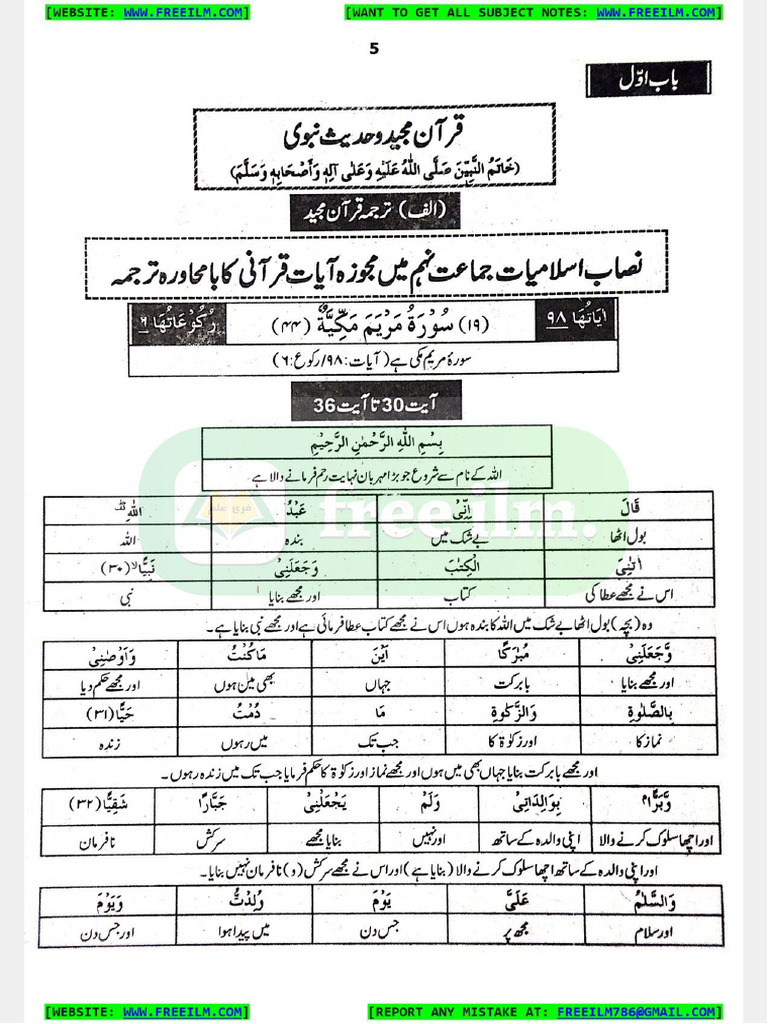 [WEBSITE: WWW.FREEILM.COM] [WANT TO GET ALL SUBJECT NOTES: WWW.FREEILM.COM]
5
باب اوّل
قرآن مجید و حدیث نبوی
(خَاتَمُ النَّبِیّٖنَ صَلَّی اللہُ عَلَیْہِ وَعَلٰی آلِہٖ وَأَصْحَابِہٖ وَسَلَّمَ)
(الف) ترجمہ قرآن مجید
نصاب اسلامیات جماعت نہم میں مجوزہ آیات قرآنی کا بامحاورہ ترجمہ
اٰیَاتُہَا ۹۸ (۱۹) سُوْرَۃُ مَرْیَمَ مَکِّیَّۃٌ (۴۴) رُکُوْعَاتُہَا ۶
سورۂ مریم مکی ہے (آیات: ۹۸/رکوع: ۶)
آیت 30 تا آیت 36
بِسْمِ اللہِ الرَّحْمٰنِ الرَّحِیْمِ
اللہ کے نام سے شروع جو بڑا مہربان نہایت رحم فرمانے والا ہے
freeilm.
قَالَ اِنِّیْ عَبْدُ اللہِ قف
بول اٹھا بے شک میں بندہ اللہ
اٰتٰنِیَ الْکِتٰبَ وَجَعَلَنِیْ نَبِیًّا لا (۳۰)
اس نے مجھے عطا کی کتاب اور مجھے بنایا نبی
وہ (بچہ) بول اٹھا بے شک میں اللہ کا بندہ ہوں اس نے مجھے کتاب عطا فرمائی ہے اور مجھے نبی بنایا ہے۔
وَّجَعَلَنِیْ مُبٰرَکًا اَیْنَ مَا کُنْتُ وَاَوْصٰنِیْ
اور مجھے بنایا بابرکت جہاں بھی میں ہوں اور مجھے حکم دیا
بِالصَّلٰوۃِ وَالزَّکٰوۃِ مَا دُمْتُ حَیًّا (۳۱)
نماز کا اور زکوٰۃ کا جب تک میں رہوں زندہ
اور مجھے بابرکت بنایا جہاں بھی میں ہوں اور مجھے نماز اور زکوٰۃ کا حکم فرمایا جب تک میں زندہ رہوں۔
وَّبَرًّا بِوَالِدَتِیْ وَلَمْ یَجْعَلْنِیْ جَبَّارًا شَقِیًّا (۳۲)
اور اچھا سلوک کرنے والا اپنی والدہ کے ساتھ اور نہیں بنایا مجھے سرکش نافرمان
اور اپنی والدہ کے ساتھ اچھا سلوک کرنے والا (بنایا ہے) اور اس نے مجھے سرکش (و) نافرمان نہیں بنایا۔
وَالسَّلٰمُ عَلَیَّ یَوْمَ وُلِدْتُّ وَیَوْمَ
اور سلام مجھ پر جس دن میں پیدا ہوا اور جس دن
[WEBSITE: WWW.FREEILM.COM] [REPORT ANY MISTAKE AT: FREEILM786@GMAIL.COM]